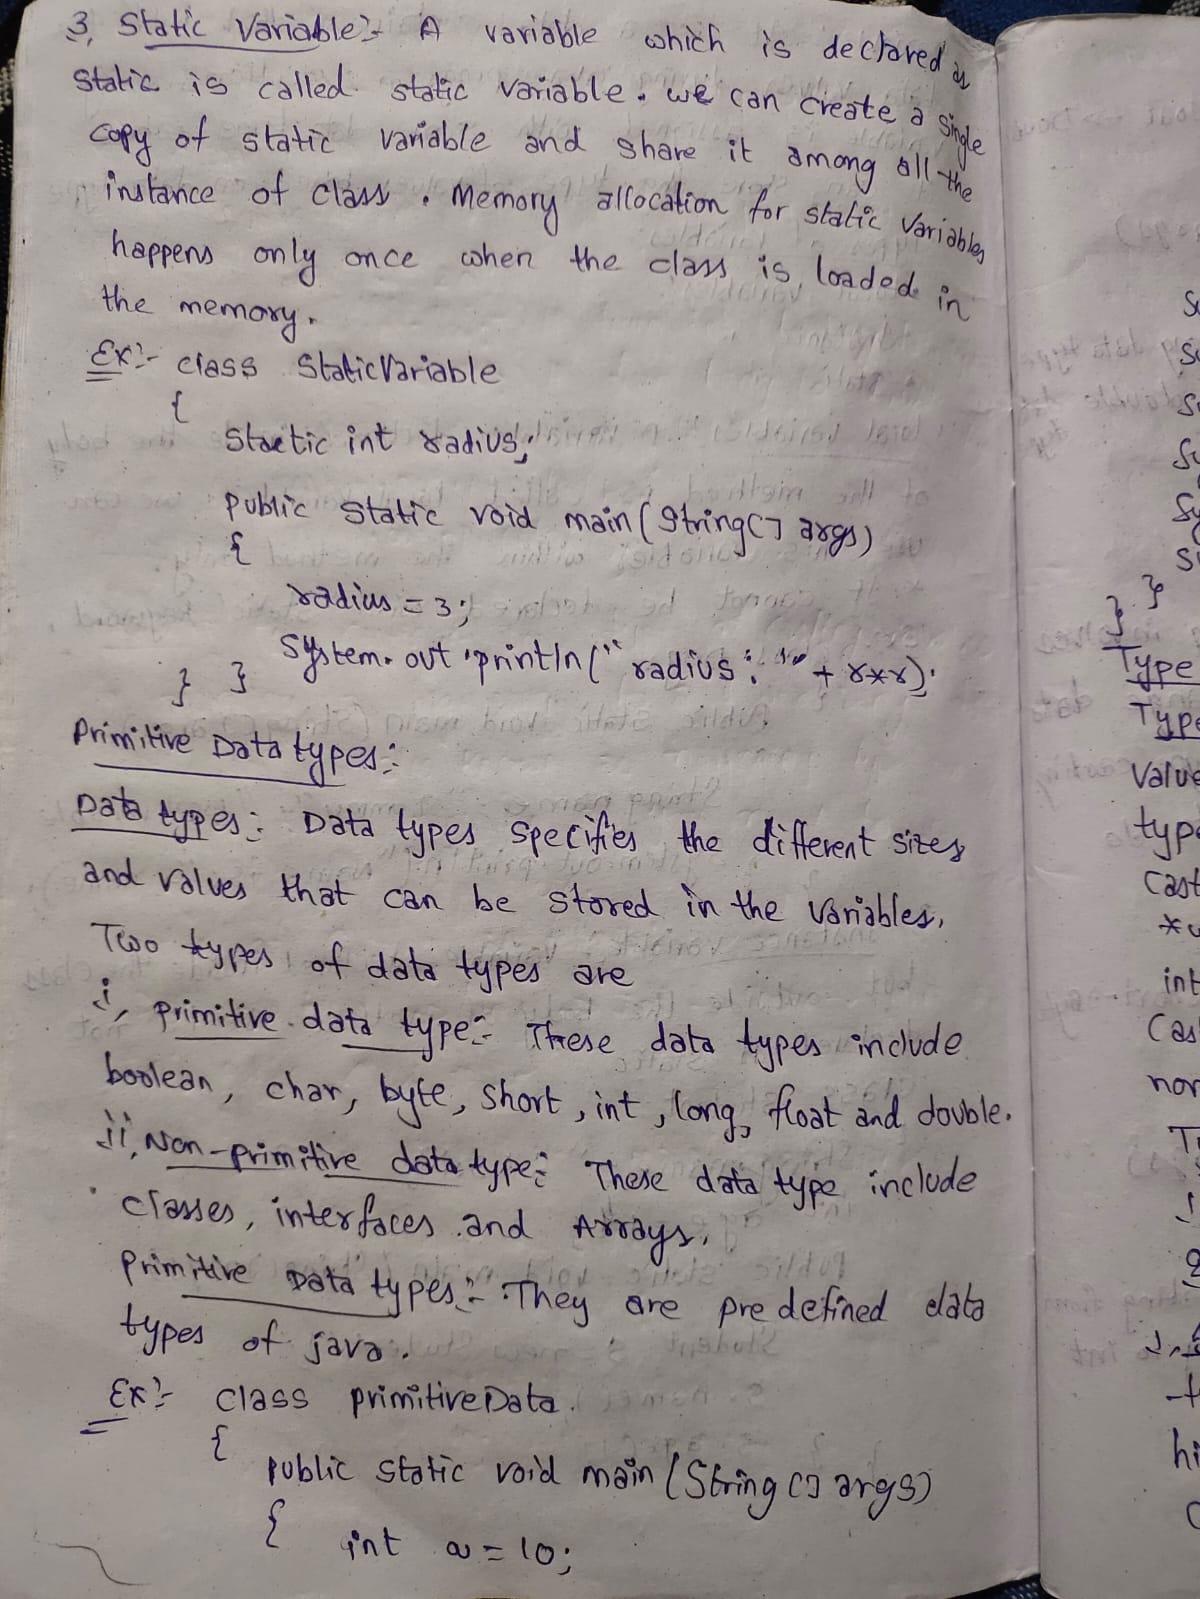 3, Static Variable:- A variable which is declared as
static is called static variable. we can create a single
copy of static variable and share it among all the
instance of class. Memory allocation for static variables
happens only once when the class is loaded in
the memory.
Ex:- class StaticVariable
{
static int radius;
public static void main(String[] args)
{
radius = 3;
System.out.println("radius: "+r*r);
} }
Primitive Data types:-
Data types: Data types specifies the different sizes
and values that can be stored in the variables.
Two types of data types are
i, primitive data type:- These data types include
boolean, char, byte, short, int, long, float and double.
ii, Non-primitive data type: These data type include
classes, interfaces and Arrays.
Primitive Data types:- They are predefined data
types of java.
Ex:- class primitiveData.
{
public static void main(String[] args)
{
int a = 10;
} }
Type
Type
Value
type
Cast
int